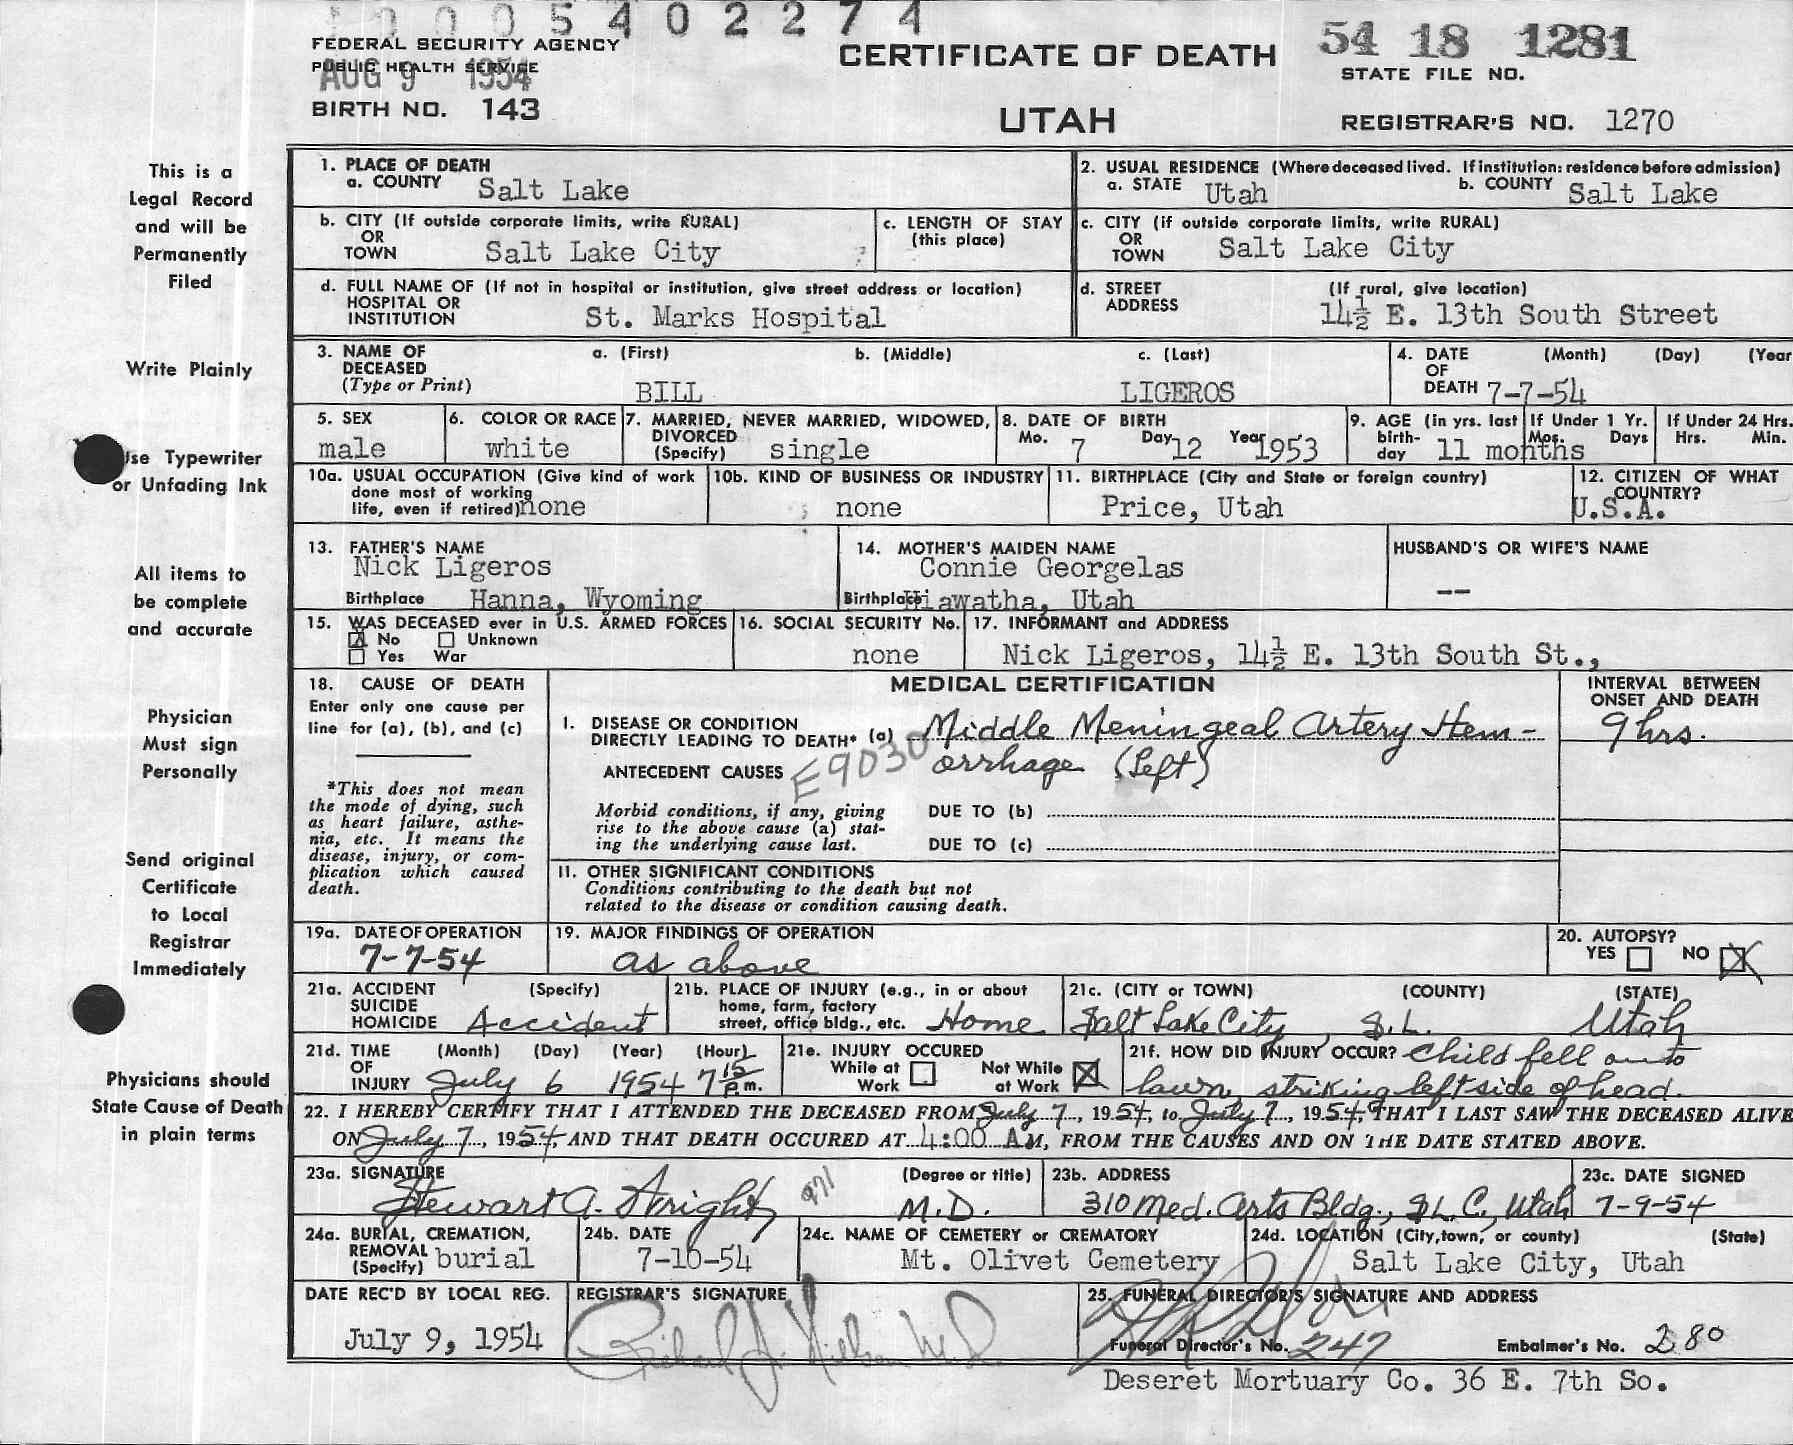 10005402274
FEDERAL SECURITY AGENCY
PUBLIC HEALTH SERVICE
AUG 9 1954
BIRTH NO. 143
CERTIFICATE OF DEATH
UTAH
54 18 1281
STATE FILE NO.
REGISTRAR'S NO. 1270
This is a
Legal Record
and will be
Permanently
Filed
Write Plainly
Use Typewriter
or Unfading Ink
All items to
be complete
and accurate
Physician
Must sign
Personally
Send original
Certificate
to Local
Registrar
Immediately
Physicians should
State Cause of Death
in plain terms
1. PLACE OF DEATH
a. COUNTY Salt Lake
2. USUAL RESIDENCE (Where deceased lived. If institution: residence before admission)
a. STATE Utah b. COUNTY Salt Lake
b. CITY (If outside corporate limits, write RURAL)
OR
TOWN Salt Lake City
c. LENGTH OF STAY
(this place)
c. CITY (if outside corporate limits, write RURAL)
OR
TOWN Salt Lake City
d. FULL NAME OF (If not in hospital or institution, give street address or location)
HOSPITAL OR
INSTITUTION St. Marks Hospital
d. STREET (If rural, give location)
ADDRESS 14½ E. 13th South Street
3. NAME OF a. (First) b. (Middle) c. (Last)
DECEASED
(Type or Print) BILL LIGEROS
4. DATE (Month) (Day) (Year
OF
DEATH 7-7-54
5. SEX
male
6. COLOR OR RACE
white
7. MARRIED, NEVER MARRIED, WIDOWED,
DIVORCED
(Specify) single
8. DATE OF BIRTH
Mo. 7 Day 12 Year 1953
9. AGE (in yrs. last
birth-
day 11 months
If Under 1 Yr.
Mos. Days
If Under 24 Hrs.
Hrs. Min.
10a. USUAL OCCUPATION (Give kind of work
done most of working
life, even if retired) none
10b. KIND OF BUSINESS OR INDUSTRY
none
11. BIRTHPLACE (City and State or foreign country)
Price, Utah
12. CITIZEN OF WHAT
COUNTRY?
U.S.A.
13. FATHER'S NAME
Nick Ligeros
Birthplace Hanna, Wyoming
14. MOTHER'S MAIDEN NAME
Connie Georgelas
Birthplace Hiawatha, Utah
HUSBAND'S OR WIFE'S NAME
--
15. WAS DECEASED ever in U.S. ARMED FORCES
No Unknown
Yes War
16. SOCIAL SECURITY No.
none
17. INFORMANT and ADDRESS
Nick Ligeros, 14½ E. 13th South St.,
18. CAUSE OF DEATH
Enter only one cause per
line for (a), (b), and (c)
*This does not mean
the mode of dying, such
as heart failure, asthe-
nia, etc. It means the
disease, injury, or com-
plication which caused
death.
MEDICAL CERTIFICATION
INTERVAL BETWEEN
ONSET AND DEATH
I. DISEASE OR CONDITION
DIRECTLY LEADING TO DEATH* (a) Middle Meningeal Artery Hem- 9 hrs.
ANTECEDENT CAUSES E9030 orrhage (Left)
Morbid conditions, if any, giving
rise to the above cause (a) stat-
ing the underlying cause last.
DUE TO (b)
DUE TO (c)
II. OTHER SIGNIFICANT CONDITIONS
Conditions contributing to the death but not
related to the disease or condition causing death.
19a. DATE OF OPERATION
7-7-54
19. MAJOR FINDINGS OF OPERATION
as above
20. AUTOPSY?
YES NO
21a. ACCIDENT (Specify)
SUICIDE
HOMICIDE Accident
21b. PLACE OF INJURY (e.g., in or about
home, farm, factory
street, office bldg., etc. Home
21c. (CITY or TOWN) (COUNTY) (STATE)
Salt Lake City, S.L. Utah
21d. TIME (Month) (Day) (Year) (Hour)
OF
INJURY July 6 1954 7 15 p.m.
21e. INJURY OCCURED
While at Not While
Work at Work
21f. HOW DID INJURY OCCUR? Child fell onto
lawn, striking left side of head.
22. I HEREBY CERTIFY THAT I ATTENDED THE DECEASED FROM July 7, 1954, to July 7, 1954, THAT I LAST SAW THE DECEASED ALIVE
ON July 7, 1954, AND THAT DEATH OCCURED AT 4:00 AM, FROM THE CAUSES AND ON THE DATE STATED ABOVE.
23a. SIGNATURE (Degree or title)
Stewart A. Wright 971 M.D.
23b. ADDRESS
310 Med. Arts Bldg., S.L.C., Utah
23c. DATE SIGNED
7-9-54
24a. BURIAL, CREMATION,
REMOVAL
(Specify) burial
24b. DATE
7-10-54
24c. NAME OF CEMETERY or CREMATORY
Mt. Olivet Cemetery
24d. LOCATION (City, town, or county) (State)
Salt Lake City, Utah
DATE REC'D BY LOCAL REG.
July 9, 1954
REGISTRAR'S SIGNATURE
25. FUNERAL DIRECTOR'S SIGNATURE AND ADDRESS
Funeral Director's No. 247 Embalmer's No. 280
Deseret Mortuary Co. 36 E. 7th So.